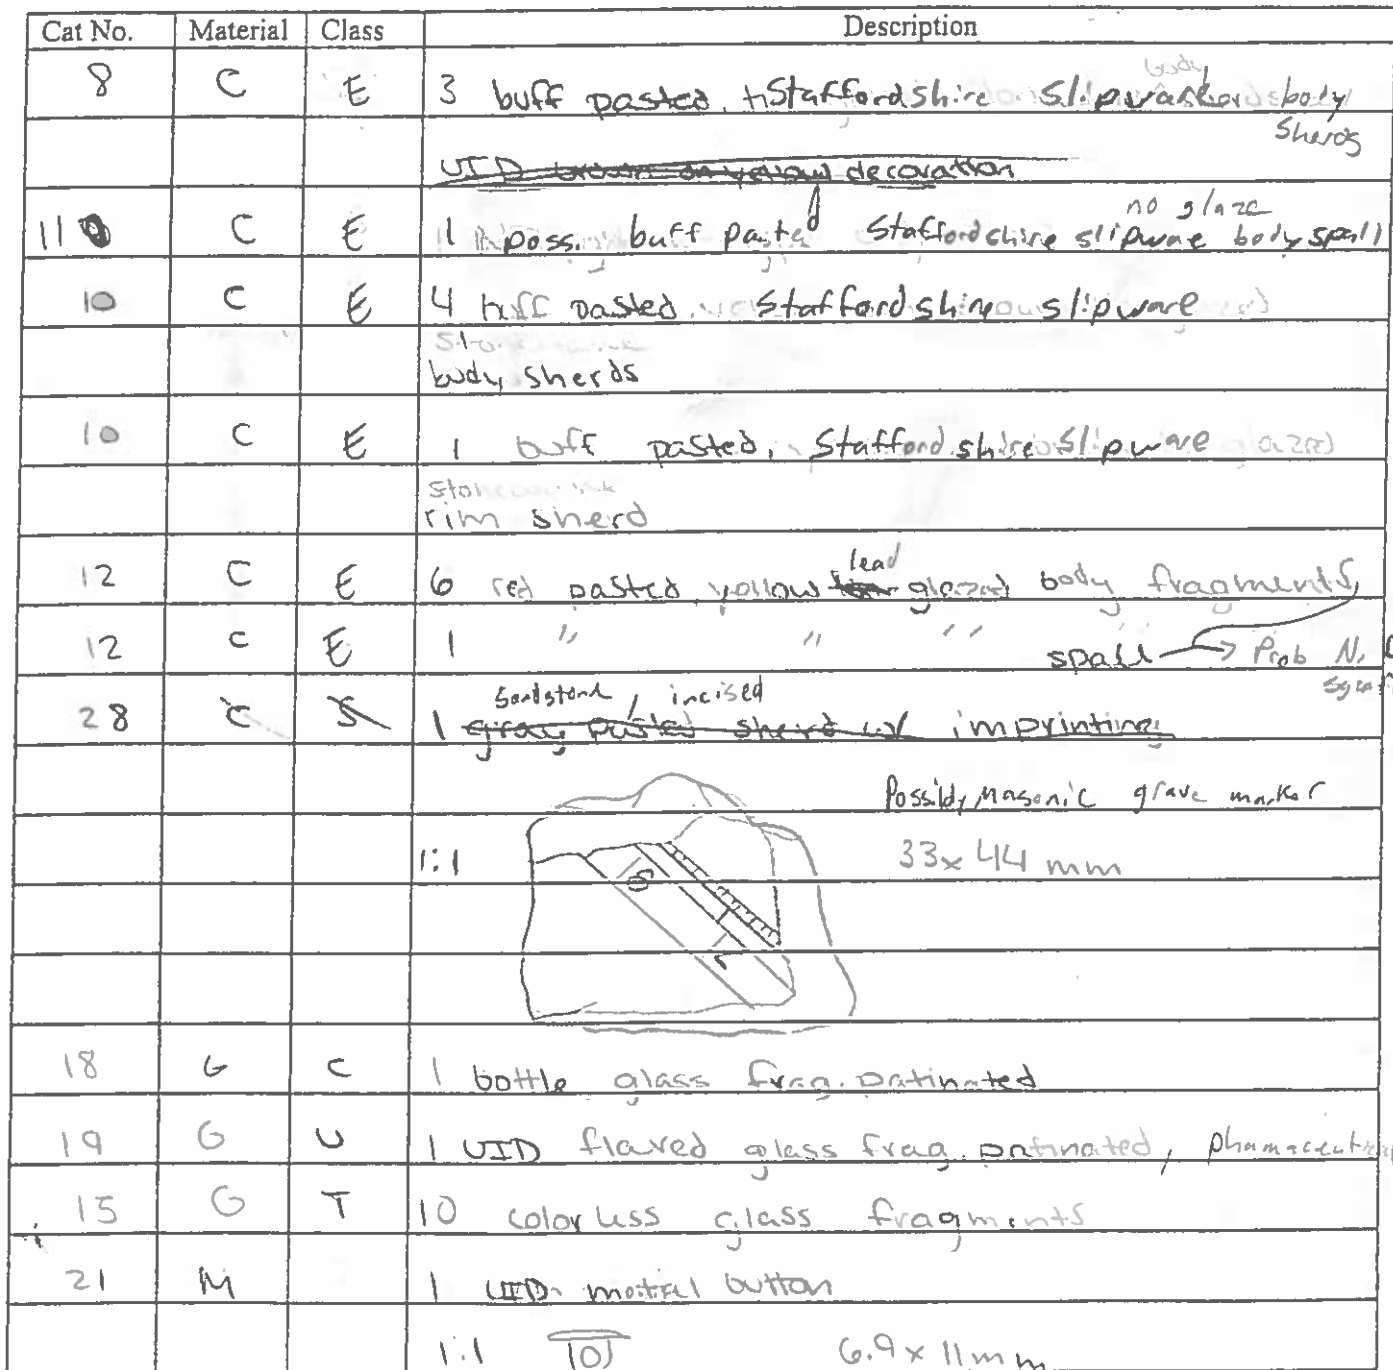 Cat No. Material Class Description
8 C E 3 buff pasted, Staffordshire Slipware body
sherds
UID brown on yellow decoration
no glaze
11 C E 1 poss. buff pasted Staffordshire slipware body spall
10 C E 4 buff pasted, Staffordshire slipware
body sherds
10 C E 1 buff pasted, Staffordshire Slipware
rim sherd
lead
12 C E 6 red pasted, yellow glazed body fragments,
12 C E 1 " " " spall → Prob N.
Sandstone, incised
28 C S 1 gray pasted sherd w/ imprinting
Possibly Masonic grave marker
1:1 33x44 mm
18 G C 1 bottle glass frag. patinated
19 G U 1 UID flared glass frag. patinated,
15 G T 10 colorless glass fragments
21 M 1 UID metal button
1:1 6.9 x 11 mm